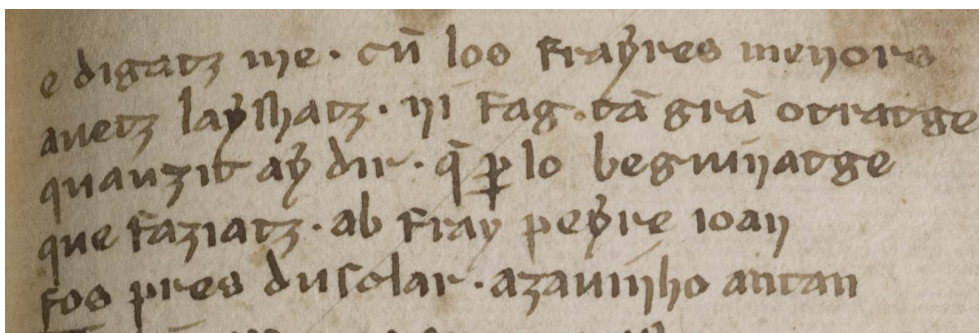 e digatz me · cū los frayres menors
auetz layshatz · ni fag · tā grā otratge
quauzit ay dir · q̄ ꝑ lo beguinatge
que faziatz · ab fray peyre ioan
fos pres du solar · azauinho antan